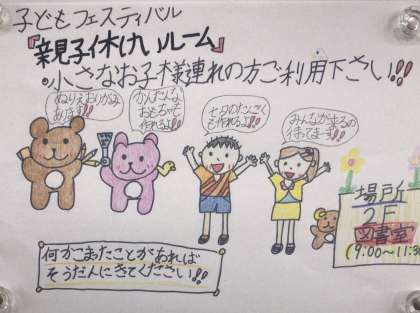 子どもフェスティバル
『親子休けいルーム』
・小さなお子様連れの方ご利用下さい!!!
ぬりえおりがみ
あります!!
かんたんな
おもちゃも
作れるよ!!
七夕のたんざく
も作れるよ!!
みんなが来るの
待ってまーす!!
場所
2F
図書室
(9:00〜11:30
何かこまったことがあれば
そうだんにきてください!!